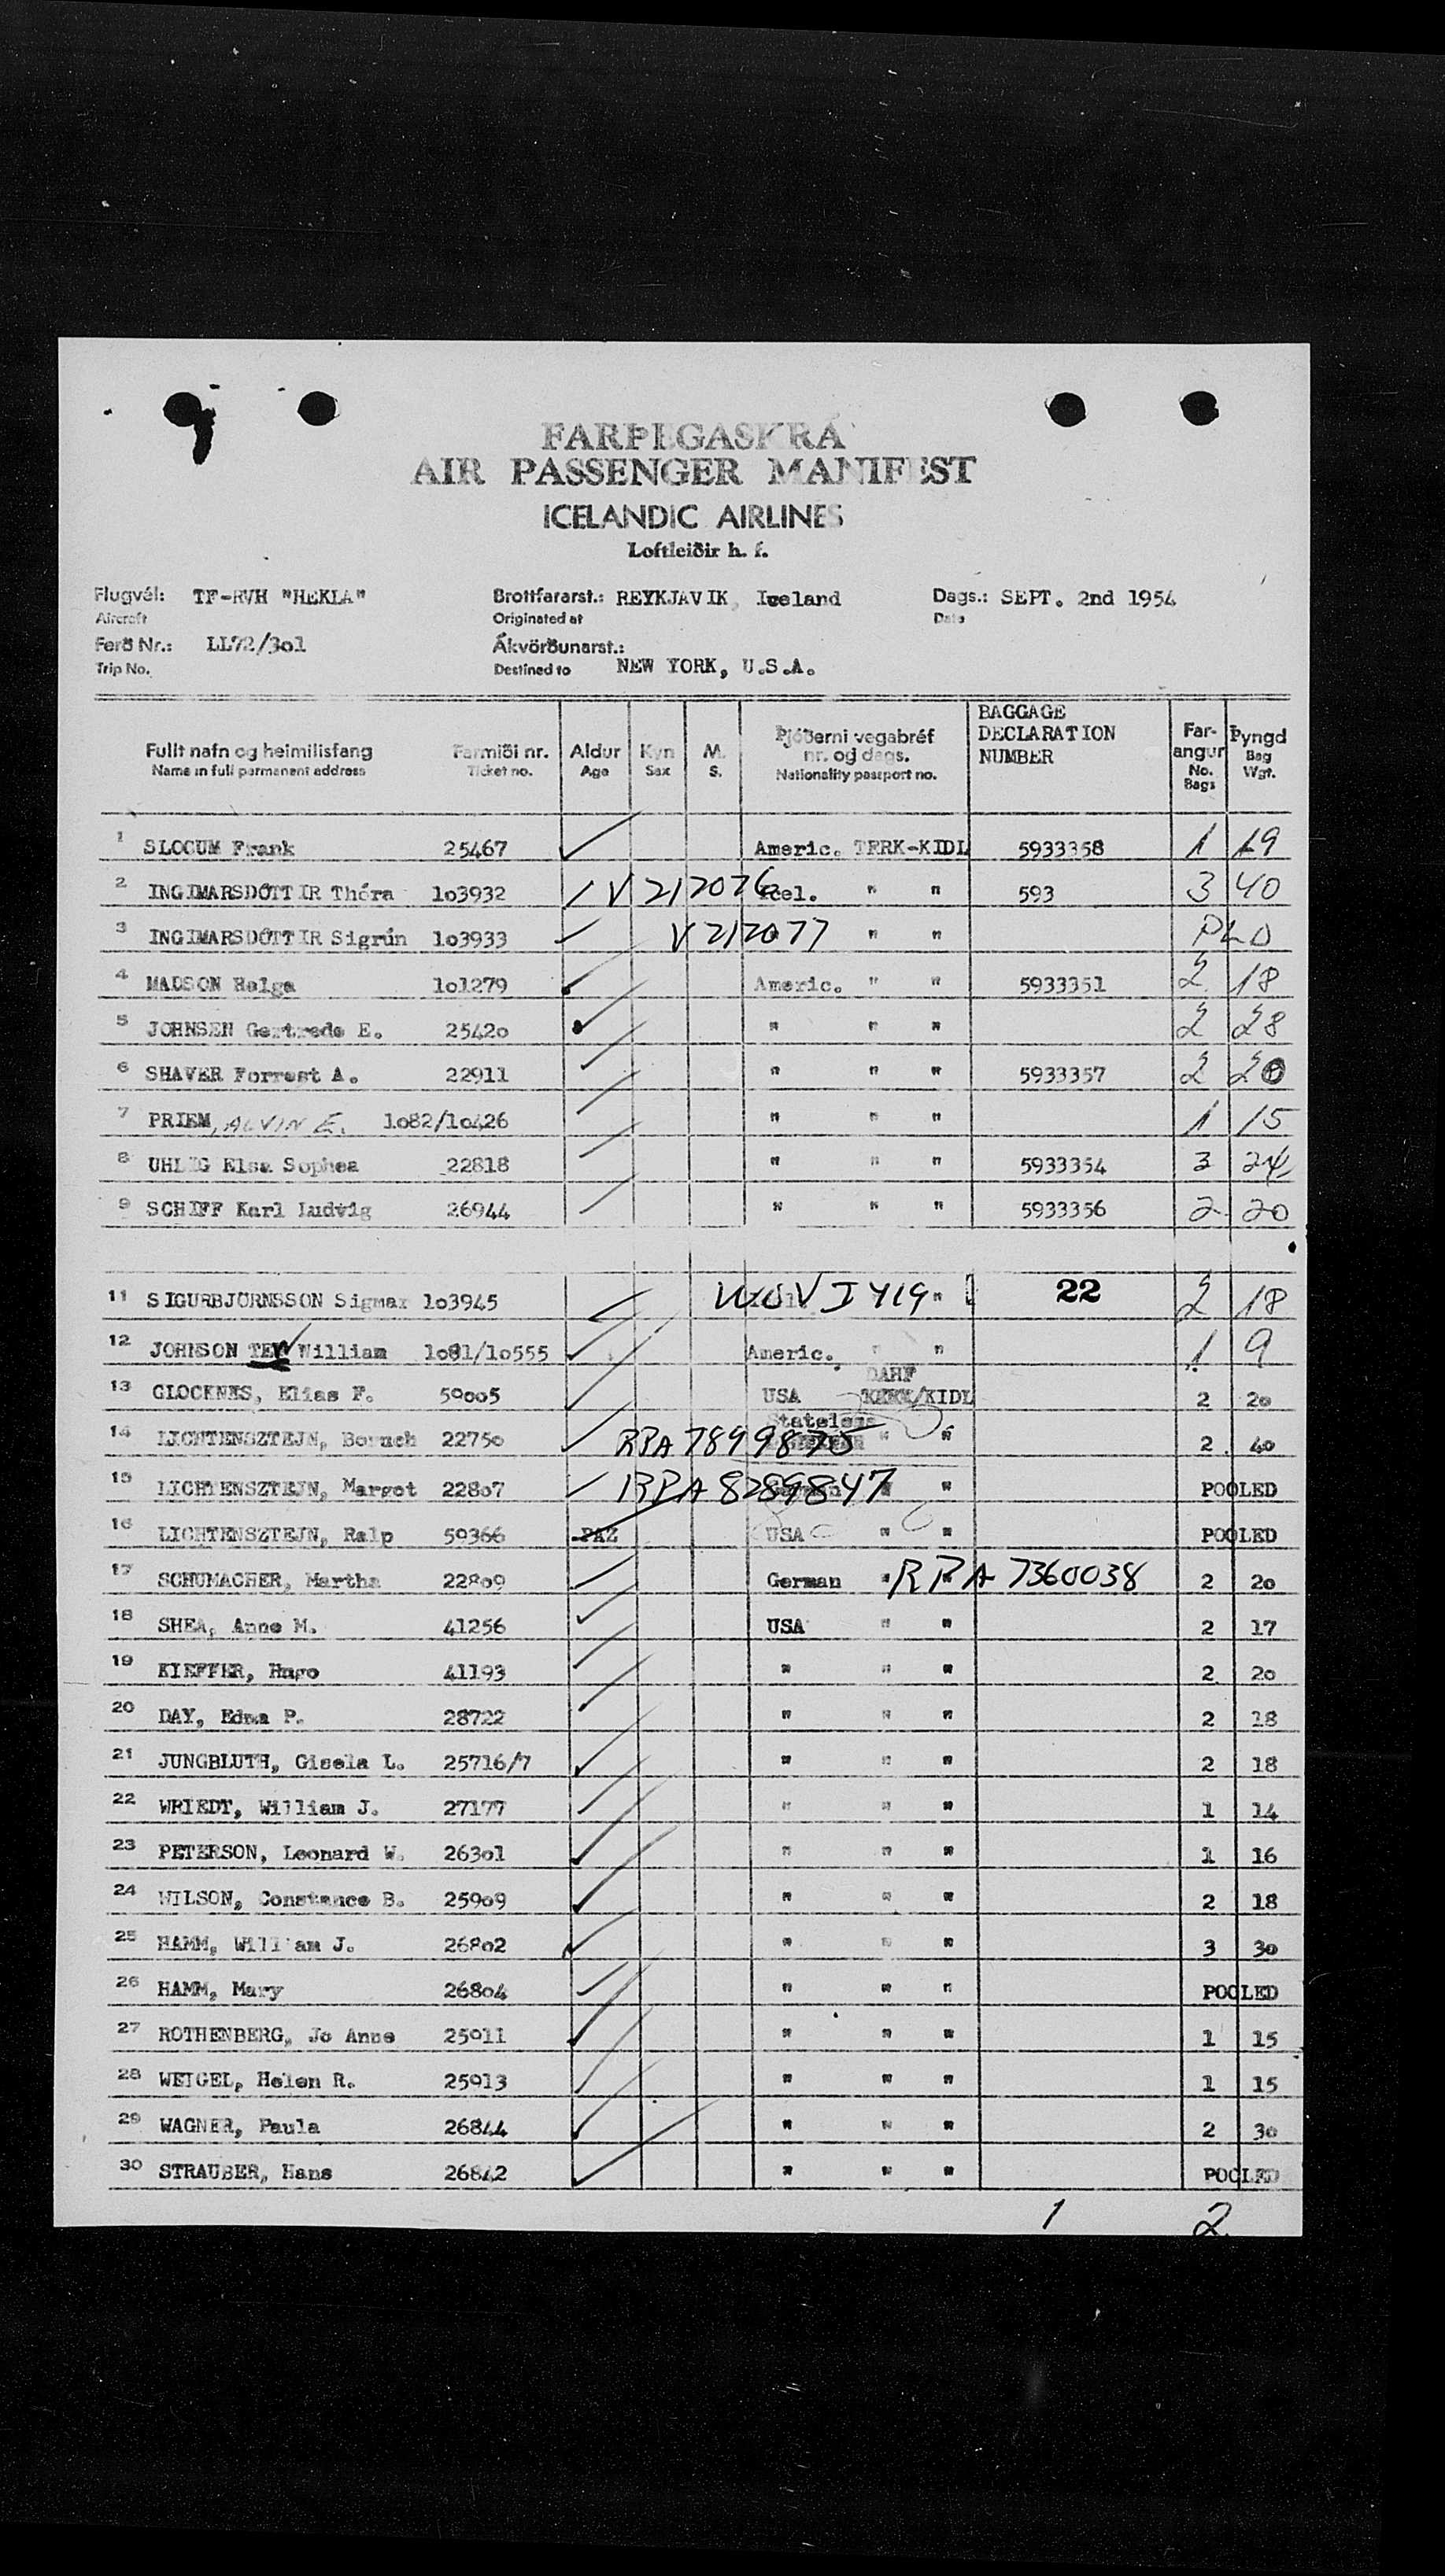 FARÞEGASKRÁ
AIR PASSENGER MANIFEST
ICELANDIC AIRLINES
Loftleiðir h. f.
Flugvél: TF-RVH "HEKLA" Brottfararst.: REYKJAVIK, Iceland Dags.: SEPT. 2nd 1954
Aircraft Originated at Date
Ferð Nr.: LL72/3o1 Ákvörðunarst.:
Trip No. Destined to NEW YORK, U.S.A.
BAGGAGE
DECLARATION
NUMBER
Fullt nafn og heimilisfang Farmiði nr. Aldur Kyn M. Þjóðerni vegabréf nr. og dags. Far-angur Þyngd
Name in full permanent address Ticket no. Age Sex S. Nationality passport no. No. Bags Bag Wgt.
1 SLOCUM Frank 25467 Americ. TERK-KIDL 5933358 1 19
2 INGIMARSDÓTTIR Thóra 1o3932 V 212076 Icel. " " 593 3 40
3 INGIMARSDÓTTIR Sigrún 1o3933 V 212077 " " PLD
4 MADSON Helga 1o1279 Americ. " " 5933351 2 18
5 JOHNSEN Gertrede E. 2542o " " " 2 28
6 SHAVER Forrest A. 22911 " " " 5933357 2 20
7 PRIEM, ALVIN E. 1o82/1o426 " " " 1 15
8 UHLIG Elsa Sophea 22818 " " " 5933354 3 24
9 SCHIFF Karl Ludvig 26944 " " " 5933356 2 20
11 SIGURBJÖRNSSON Sigmar 1o3945 V I 419 " 22 2 18
12 JOHNSON TEW William 1o81/1o555 Americ. " " 1 9
DAHF
13 GLOCKNES, Elias F. 5ooo5 USA KERK/KIDL 2 2o
Stateless
14 LICHTENSZTEJN, Boruch 2275o RPA 7899875 " " 2 4o
15 LICHTENSZTEJN, Margot 228o7 RPA 8289847 " " POOLED
16 LICHTENSZTEJN, Ralp 5o366 PAZ USA " " POOLED
17 SCHUMACHER, Martha 228o9 German " " RPA 7360038 2 2o
18 SHEA, Anne M. 41256 USA " " 2 17
19 KIEFFER, Hugo 41193 " " " 2 2o
20 DAY, Edna P. 28722 " " " 2 18
21 JUNGBLUTH, Gisela L. 25716/7 " " " 2 18
22 WRIEDT, William J. 27177 " " " 1 14
23 PETERSON, Leonard W. 263o1 " " " 1 16
24 WILSON, Constance B. 259o9 " " " 2 18
25 HAMM, William J. 268o2 " " " 3 3o
26 HAMM, Mary 268o4 " " " POOLED
27 ROTHENBERG, Jo Anne 25911 " " " 1 15
28 WEIGEL, Helen R. 25913 " " " 1 15
29 WAGNER, Paula 26844 " " " 2 3o
30 STRAUBER, Hans 26842 " " " POOLED
1 2